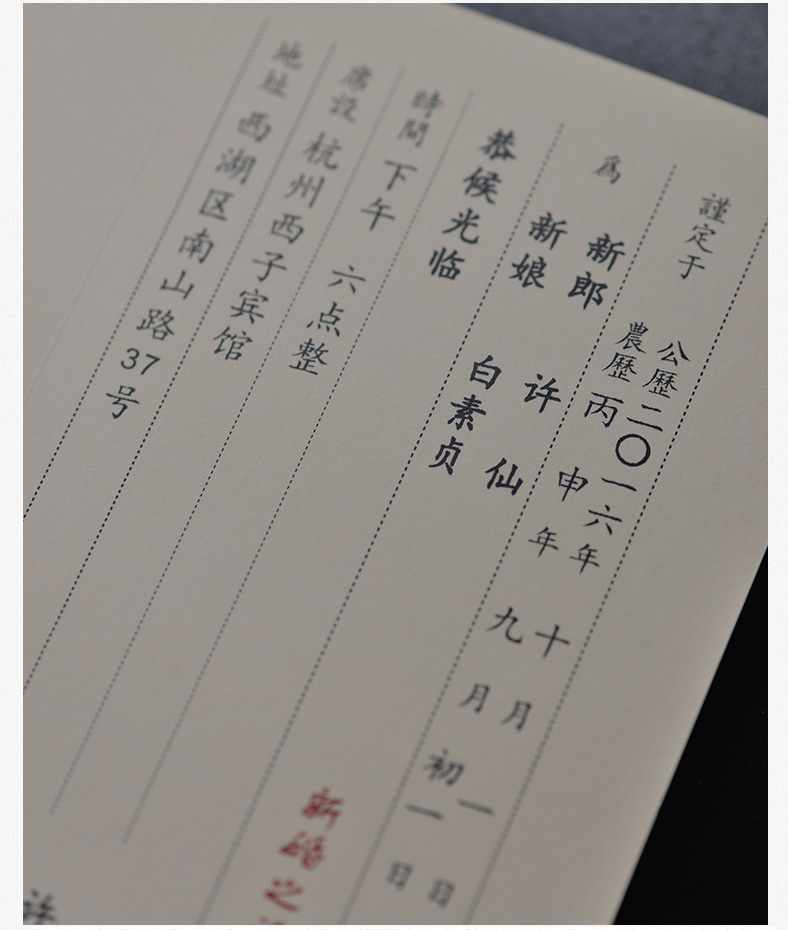 謹定于 公歷二〇一六年十月一日
農歷丙申年九月初一日
為 新郎 许仙
新娘 白素贞
恭候光临
新婚之
時間 下午 六点整
席設 杭州西子宾馆
地址 西湖区南山路37号
许